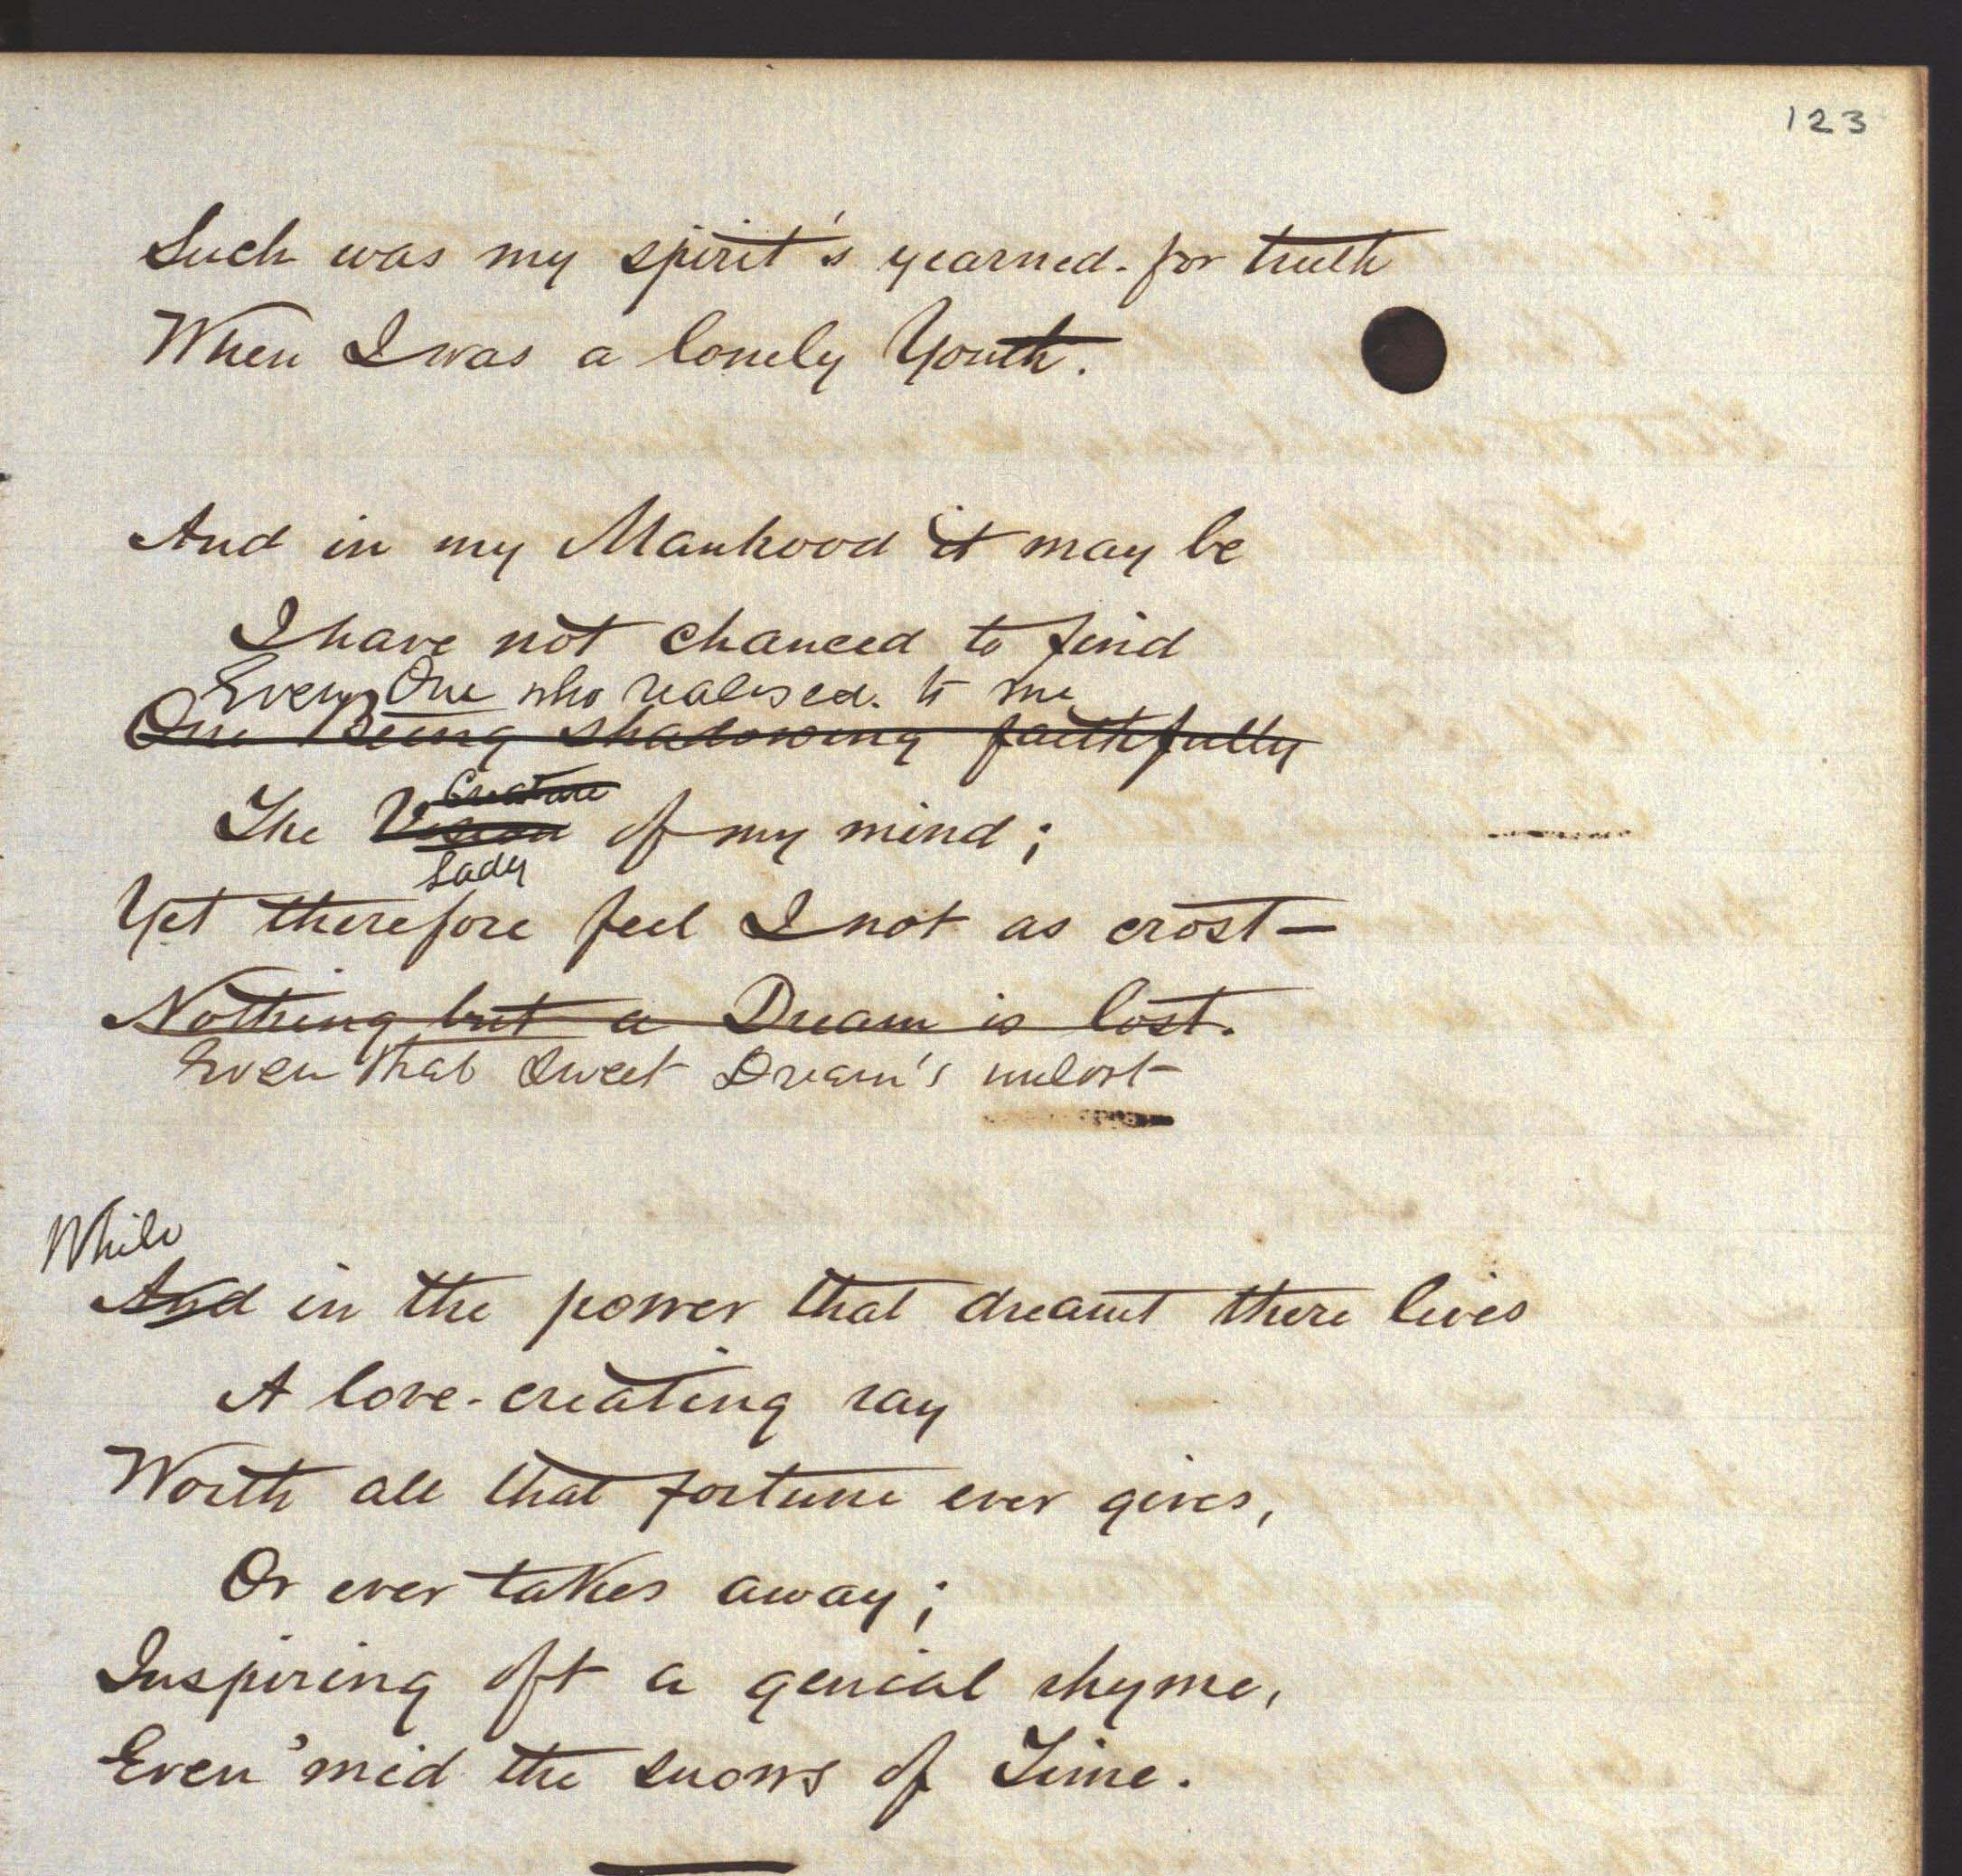 123
Such was my spirit's yearned-for truth
When I was a lonely Youth.
And in my Manhood it may be
I have not chanced to find
Even One who realised to me
One Being shadowing faithfully
Creature
The Vision of my mind;
Lady
Yet therefore feel I not as crost—
Nothing but a Dream is lost.
Even that sweet Dream's unlost—
While
And in the power that dreamt there lives
A love-creating ray
Worth all that fortune ever gives,
Or ever takes away;
Inspiring oft a genial rhyme,
Even 'mid the snows of Time.